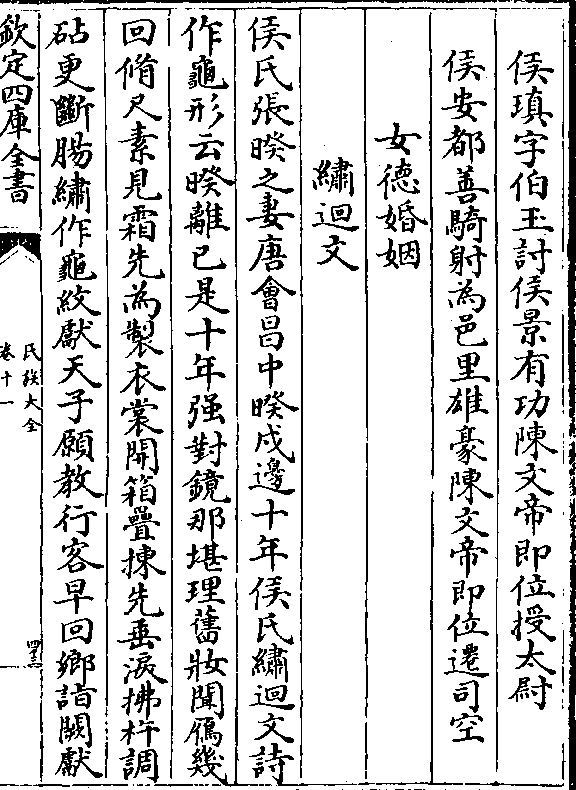 侯瑱字伯玉討侯景有功陳文帝即位授太尉
侯安都善騎射為邑里雄豪陳文帝即位遷司空
女德婚姻
繡迴文
侯氏張暌之妻唐會昌中暌戍邊十年侯氏繡迴文詩
作龜形云暌離已是十年强對鏡那堪理舊妝聞鴈幾
回脩尺素見霜先為製衣裳開箱疊揀先垂淚拂杵調
砧更斷腸繡作龜紋獻天子願教行客早回鄉詣闕獻
欽定四庫全書
氏族大全
卷十一
四十三